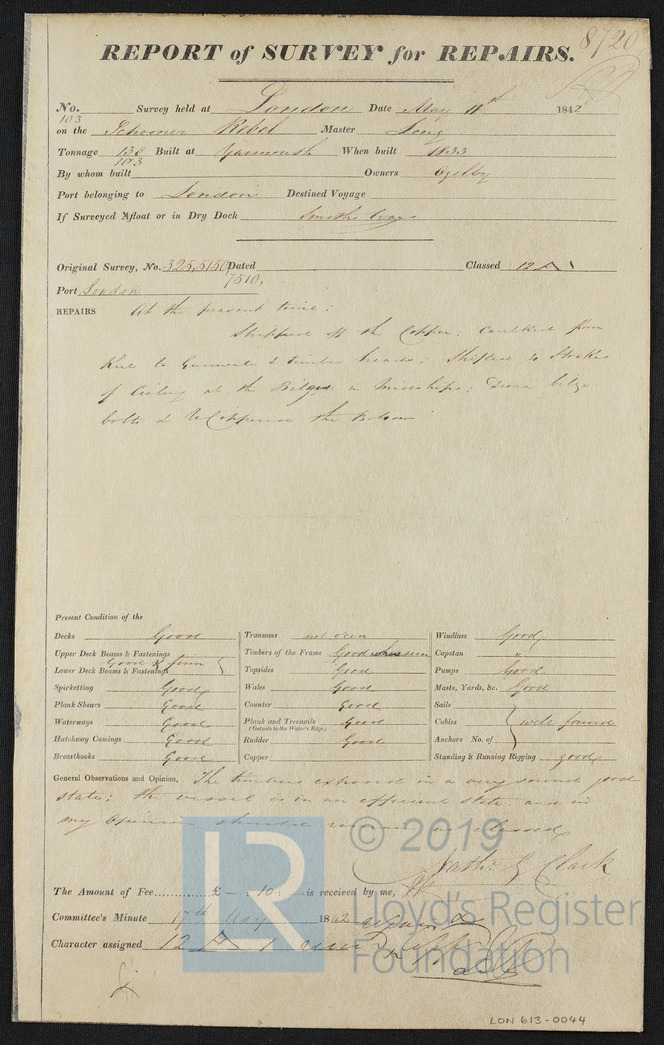 8720
REPORT of SURVEY for REPAIRS.
No. 103 Survey held at London Date May 11th 1842
on the Schooner Rebel Master Long
Tonnage 130 103 Built at Yarmouth When built 1833
By whom built Owners Ogilby
Port belonging to London Destined Voyage
If Surveyed Afloat or in Dry Dock Smiths
Original Survey, No. 325,5150 7510, Dated Classed 12 A 1
Port London
REPAIRS At the present time:
Stripped off the Copper: Caulked from
Keel to Gunwale & timber heads: Shifted 10 Strakes
of Ceiling at the Bilges in Midships: Drove bilge
bolts & the Bottom
Present Condition of the
Decks Good
Upper Deck Beams & Fastenings
Lower Deck Beams & Fastenings Good & firm
Spirketting Good
Plank Shears Good
Waterways Good
Hatchway Comings Good
Breasthooks Good
Transoms not seen
Timbers of the Frame Good where seen
Topsides Good
Wales Good
Counter Good
Plank and Treenails Good
(Outside to the Water's Edge)
Rudder Good
Copper
Windlass Good
Capstan "
Pumps Good
Masts, Yards, &c. Good
Sails
Cables well found
Anchors No. of
Standing & Running Rigging good
General Observations and Opinion, The timbers exposed in a very sound good
state: the vessel is in an efficient state and in
my Opinion should as classed
Nathl G Clark
The Amount of Fee............£ — : 10 : — is received by me,
Committee's Minute 17th May 1842
Character assigned 12 A 1
© 2019
Lloyd's Register
Foundation
LR
LON 613-0044